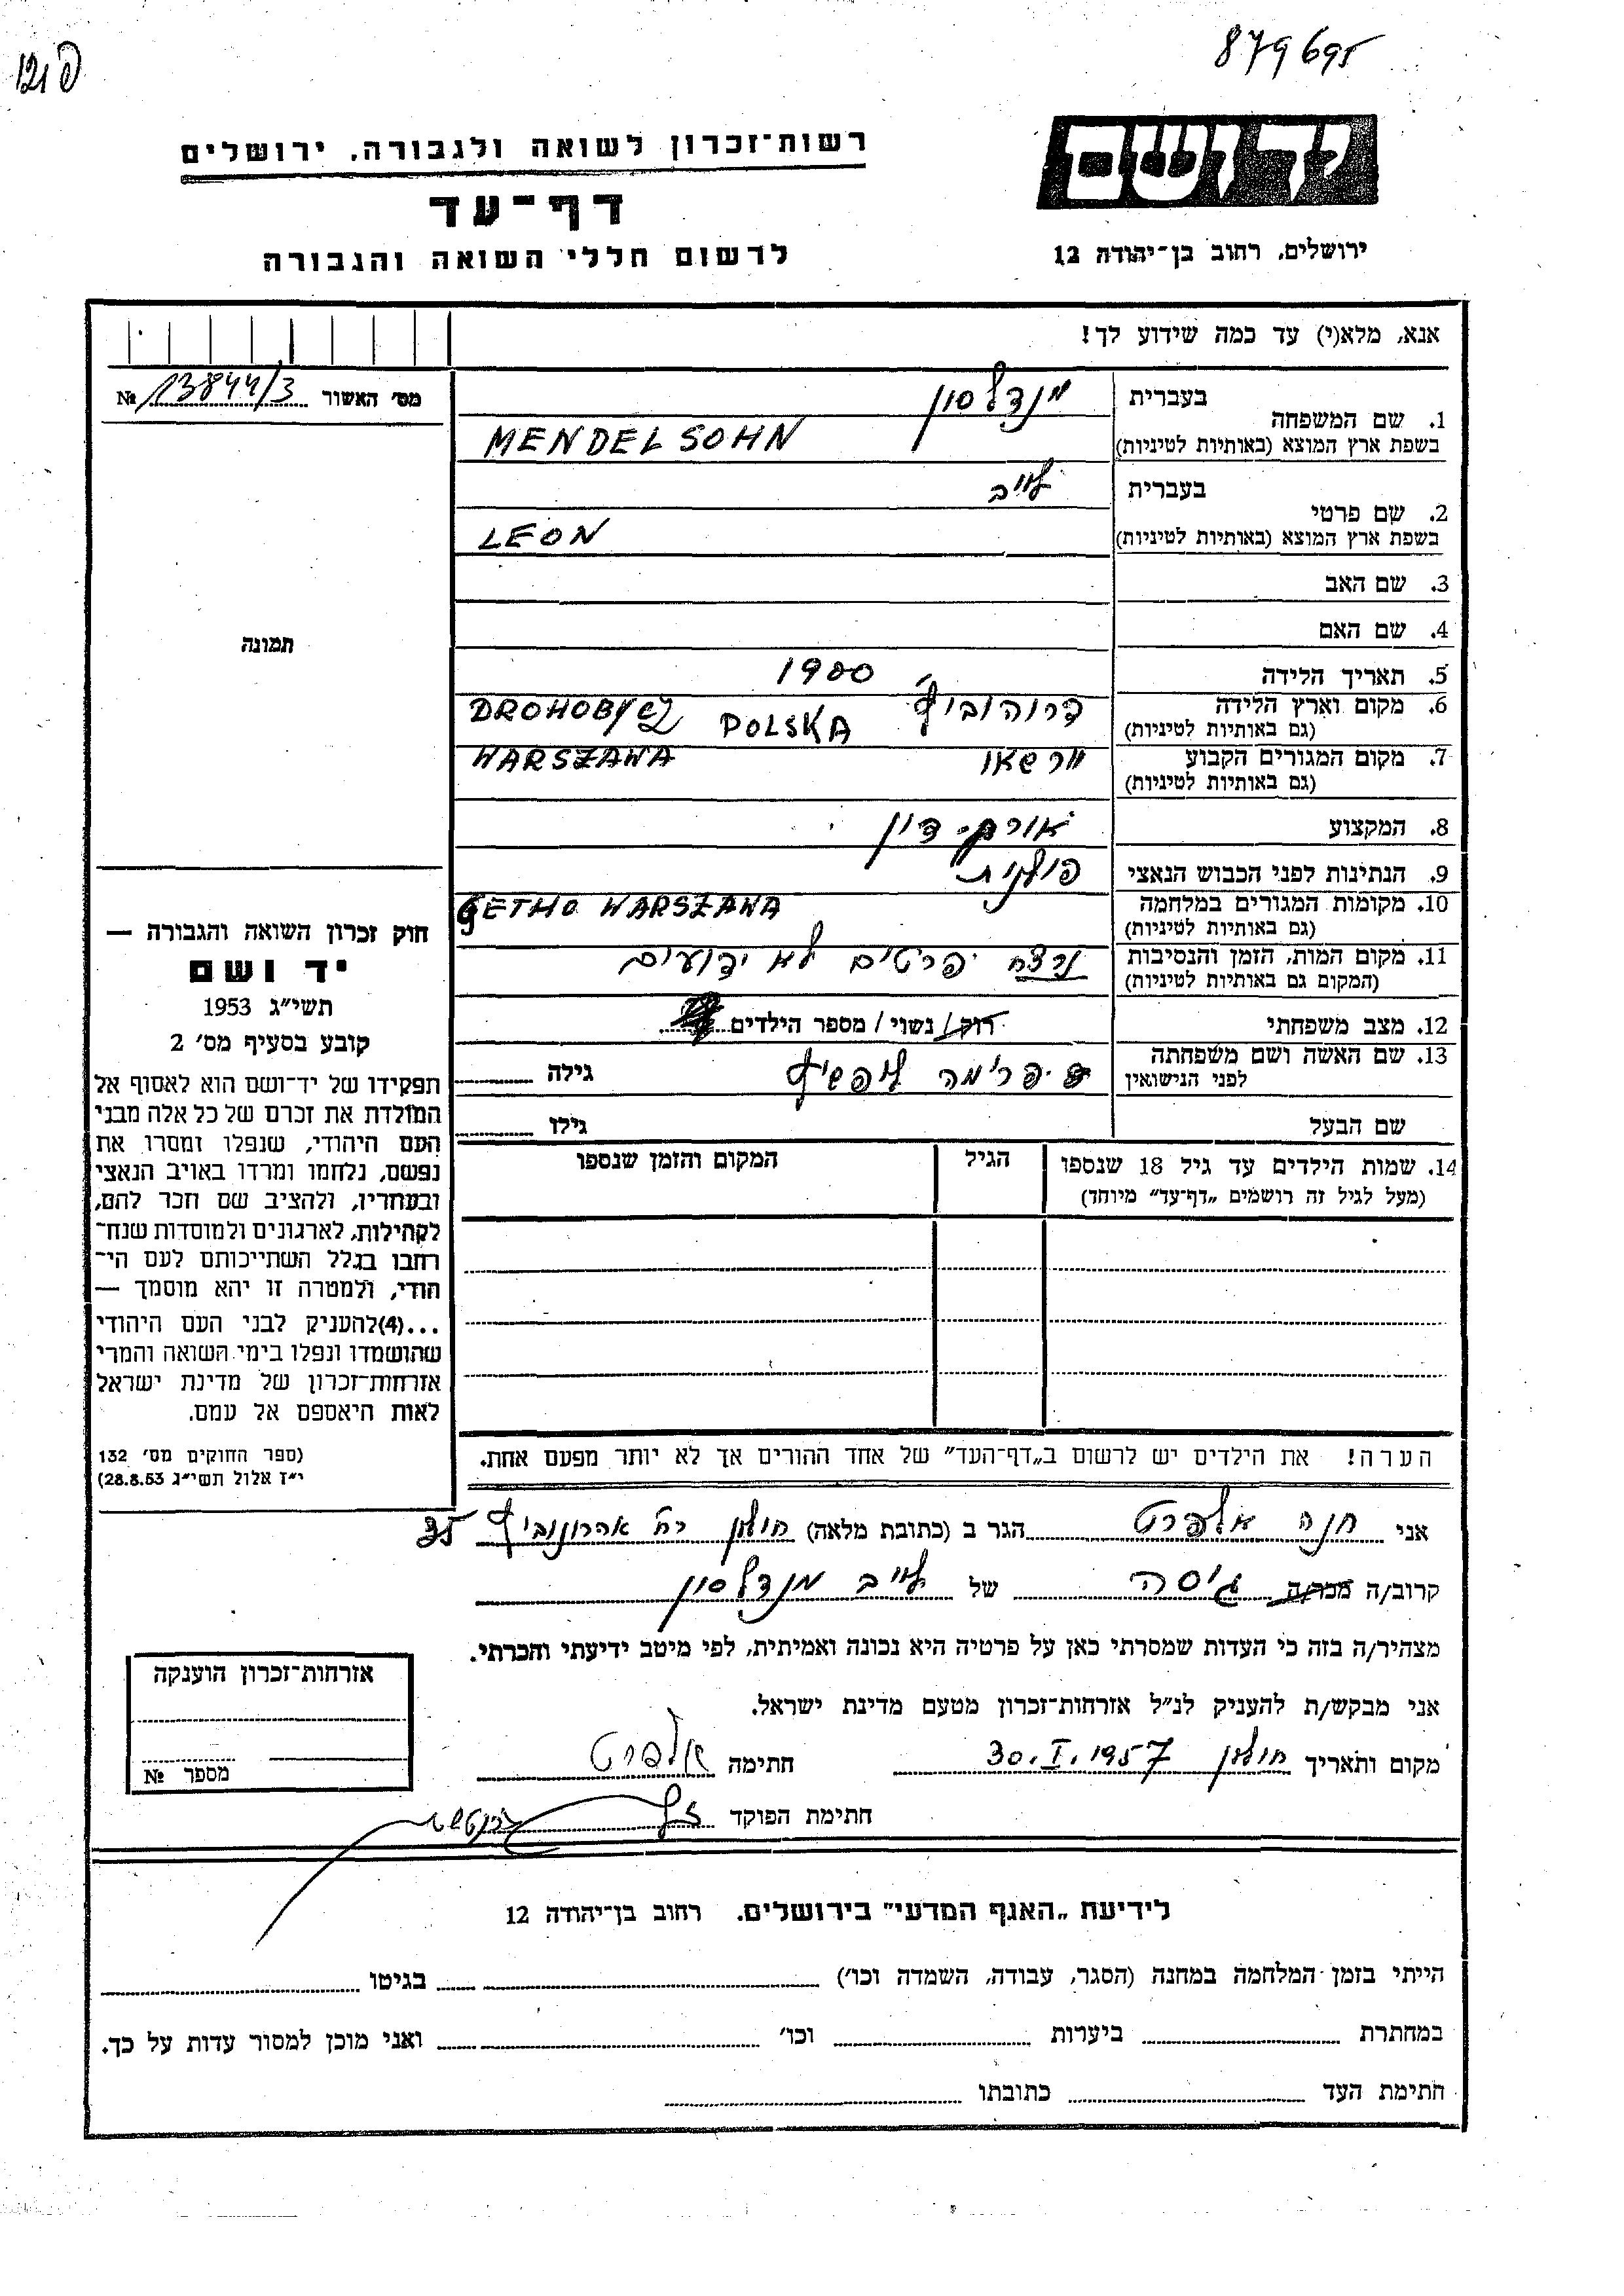 879695
רשות־זכרון לשואה ולגבורה. ירושלים
יד ושם
דף־עד
לרשום חללי השואה והגבורה
ירושלים. רחוב בן־יהודה 12
אנא, מלא(י) עד כמה שידוע לך!
מס׳ האשור 13844/3 №
1. שם המשפחה
בעברית מנדלסון
בשפת ארץ המוצא (באותיות לטיניות) MENDELSOHN
2. שם פרטי
בעברית לייב
בשפת ארץ המוצא (באותיות לטיניות) LEON
3. שם האב
4. שם האם
5. תאריך הלידה 1900
6. מקום וארץ הלידה (גם באותיות לטיניות) דרוהוביץ' DROHOBYCZ POLSKA
7. מקום המגורים הקבוע (גם באותיות לטיניות) ורשאו WARSZAWA
8. המקצוע עורך־דין
9. הנתינות לפני הכבוש הנאצי פולנית
10. מקומות המגורים במלחמה (גם באותיות לטיניות) GETHO WARSZAWA
11. מקום המות, הזמן והנסיבות (המקום גם באותיות לטיניות) נרצח פרטים לא ידועים
12. מצב משפחתי רוק/ נשוי / מספר הילדים
13. שם האשה ושם משפחתה לפני הנישואין פרימה ליפשיץ גילה
שם הבעל גילו
14. שמות הילדים עד גיל 18 שנספו (מעל לגיל זה רושמים „דף־עד" מיוחד)
הגיל
המקום והזמן שנספו
תמונה
חוק זכרון השואה והגבורה —
יד ושם
תשי״ג 1953
קובע בסעיף מס׳ 2
תפקידו של יד־ושם הוא לאסוף אל
המולדת את זכרם של כל אלה מבני
העם היהודי, שנפלו ומסרו את
נפשם, נלחמו ומרדו באויב הנאצי
ובעוזריו, ולהציב שם וזכר להם,
לקהילות, לארגונים ולמוסדות שנח־
רבו בגלל השתייכותם לעם הי־
הודי, ולמטרה זו יהא מוסמך —
...(4)להעניק לבני העם היהודי
שהושמדו ונפלו בימי השואה והמרי
אזרחות־זכרון של מדינת ישראל
לאות היאספם אל עמם.
(ספר החוקים מס׳ 132
י״ז אלול תשי״ג 28.8.53)
הערה! את הילדים יש לרשום ב„דף־העד" של אחד ההורים אך לא יותר מפעם אחת.
אני חנה אלפרט הגר ב (כתובת מלאה) חולון רח' אהרונוביץ' 35
קרוב/ה מכר/ה גיסה של לייב מנדלסון
מצהיר/ה בזה כי העדות שמסרתי כאן על פרטיה היא נכונה ואמיתית, לפי מיטב ידיעתי והכרתי.
אני מבקש/ת להעניק לנ״ל אזרחות־זכרון מטעם מדינת ישראל.
מקום ותאריך חולון 30.I.1957 חתימה אלפרט
חתימת הפוקד
אזרחות־זכרון הוענקה
מספר №
לידיעת „האגף המדעי" בירושלים. רחוב בן־יהודה 12
הייתי בזמן המלחמה במחנה (הסגר, עבודה, השמדה וכו׳) בגיטו
במחתרת ביערות וכו׳ ואני מוכן למסור עדות על כך.
חתימת העד כתובתו